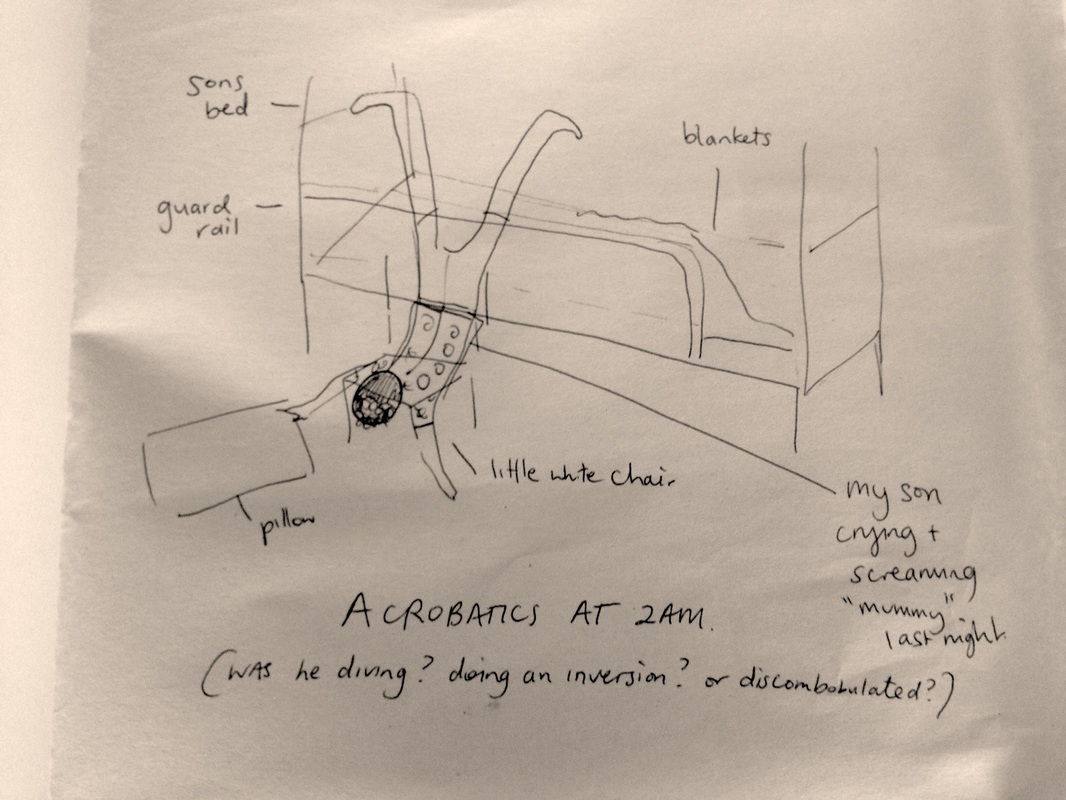 sons
bed
guard
rail
blankets
little white chair
pillow
my son
crying +
screaming
"mummy"
last night.
ACROBATICS AT 2AM.
(WAS he diving? doing an inversion? or discombobulated?)